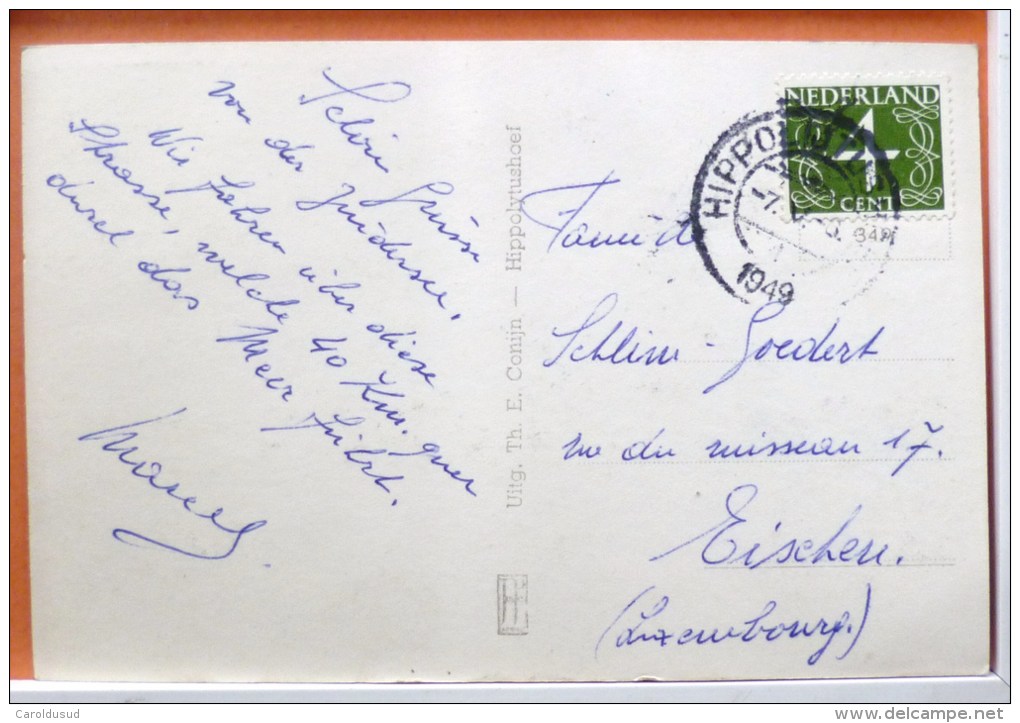 Schöne Grüsse
von der Zuidersee.
Wir fahren über diese
Strasse, welche 40 Km. quer
durch das Meer führt.
Marcel.
Uitg. Th. E. Conijn — Hippolytushoef
NEDERLAND
4
CENT
HIPPOLYTUSHOEF
1949
Famille
Schlim - Goedert
rue du ruisseau 17.
Eischen.
(Luxembourg.)
Caroldusud
www.delcampe.net